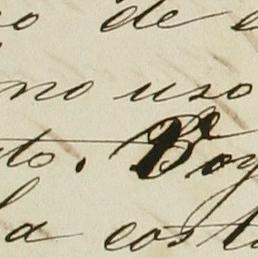 o de e
no uso
to. Boy
la costa